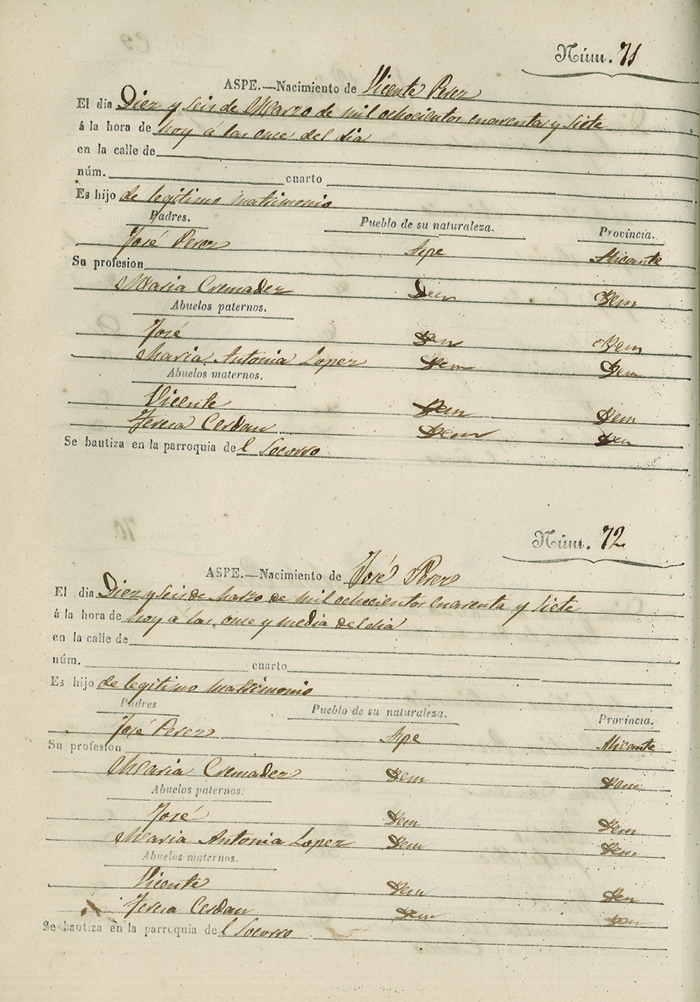 Núm. 71
ASPE.—Nacimiento de Vicente Perez
El dia Diez y seis de Marzo de mil ochocientos cuarenta y siete
á la hora de hoy á las once del dia
en la calle de
núm. cuarto
Es hijo de legitimo matrimonio
Padres. Pueblo de su naturaleza. Provincia.
José Perez Aspe Alicante
Su profesion
Maria Cremadez Ydem Ydem
Abuelos paternos.
José Ydem Ydem
Maria Antonia Lopez Ydem Ydem
Abuelos maternos.
Vicente Ydem Ydem
Teresa Cerdan Ydem Ydem
Se bautiza en la parroquia del Socorro
Núm. 72
ASPE.—Nacimiento de José Perez
El dia Diez y seis de Marzo de mil ochocientos cuarenta y siete
á la hora de hoy á las once y media del dia
en la calle de
núm. cuarto
Es hijo de legitimo matrimonio
Padres Pueblo de su naturaleza. Provincia.
José Perez Aspe Alicante
Su profesion
Maria Cremadez Ydem Ydem
Abuelos paternos.
José Ydem Ydem
Maria Antonia Lopez Ydem Ydem
Abuelos maternos.
Vicente Ydem Ydem
Teresa Cerdan Ydem Ydem
Se bautiza en la parroquia del Socorro